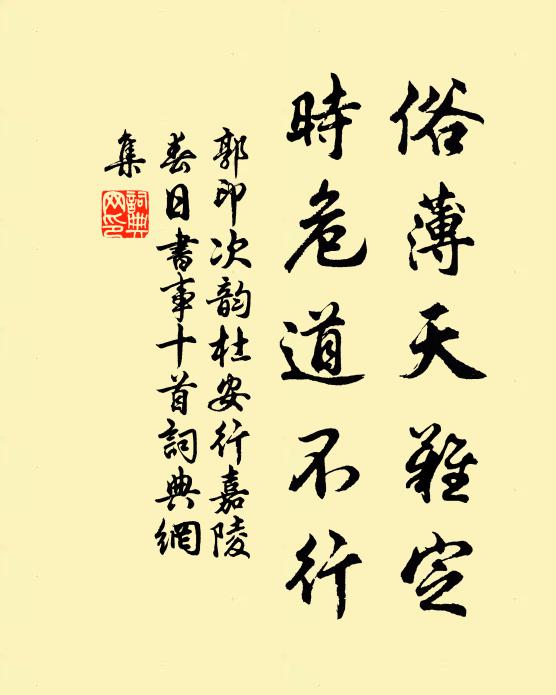 俗薄天難定
時危道不行
郭印次韵杜安行嘉陵
春日書事十首詞典網
集
詞典
网印